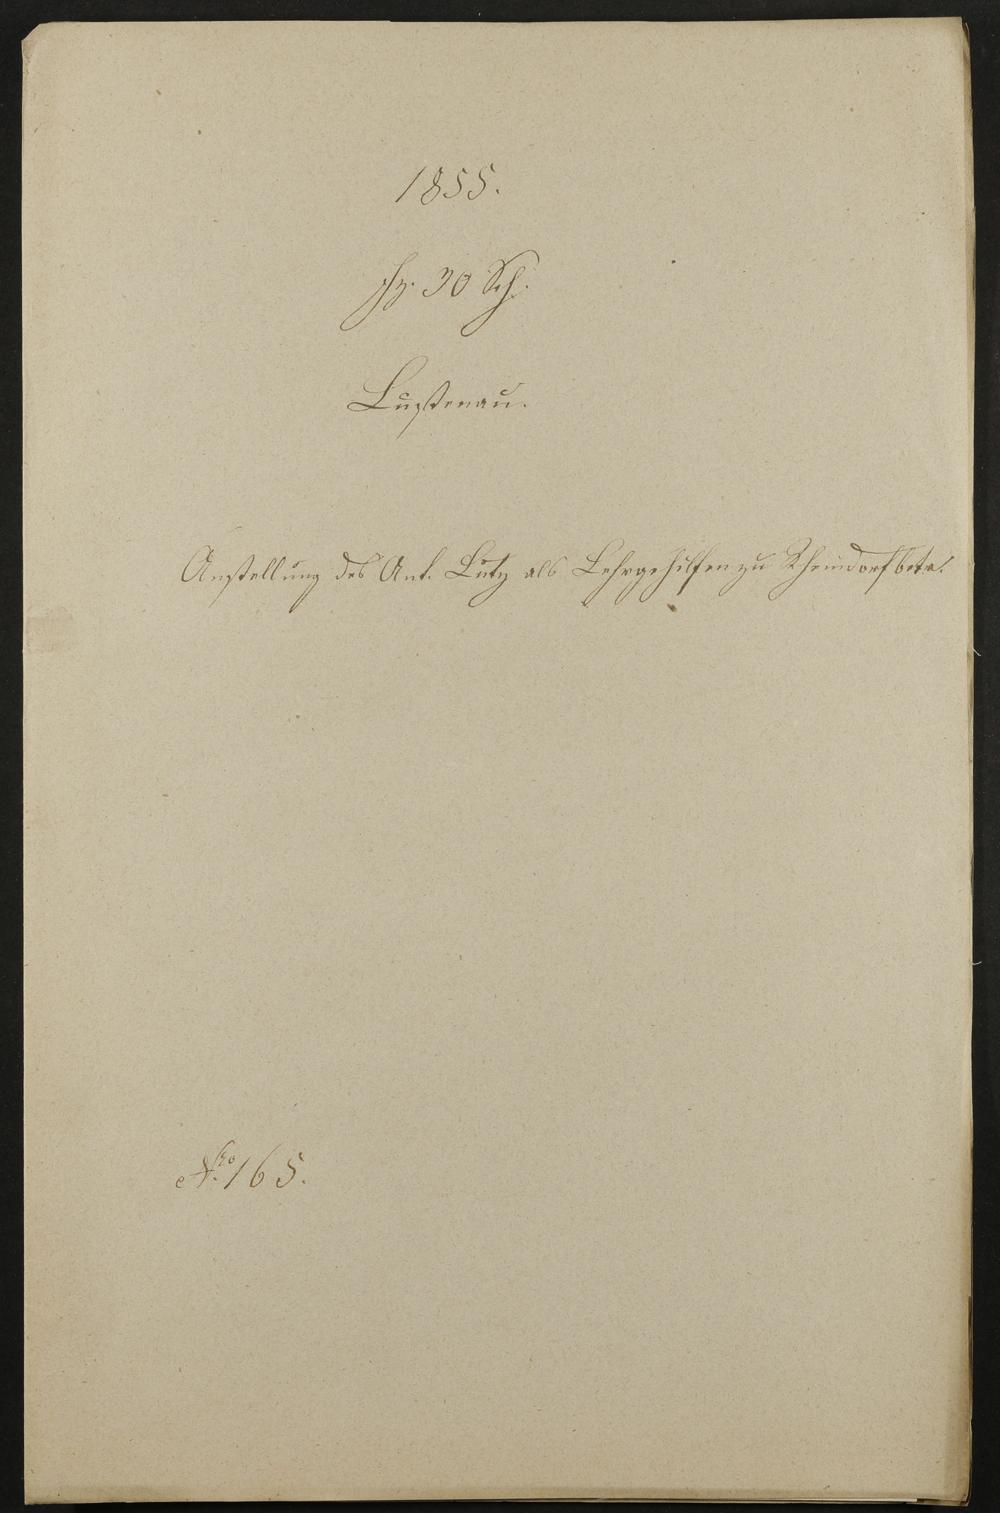 1855.
Fz. 30 Sch.
Lustenau.
Anstellung des Ant. Lutz als Lehrgehilfen zu Rheindorf betr.
Nro 165.